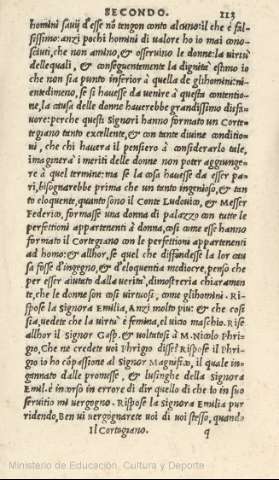 SECONDO. 113
homini sauij d'esse nõ tengon conto alcuno: il che è fal-
sissimo: anzi pochi homini di ualore ho io mai cono-
sciuti, che non amino, & osseruino le donne: la uirtù
delle quali, & conseguentemente la dignità estimo io
che non sia punto inferior à quella de glihomini: ni-
entedimeno, se si hauesse da uenire à questa contentio-
ne, la causa delle donne hauerebbe grandissimo disfa-
uore: perche questi Signori hanno formato un Corte-
giano tanto excellente, & con tante diuine conditio-
ni, che chi hauera il pensiero à considerarlo tale,
imaginerà i meriti delle donne non poter aggiunge-
re à quel termine: ma se la cosa hauesse da esser pa-
ri, bisognarebbe prima che un tanto ingenioso, & tan
to eloquente, quanto sono il Conte Ludouico, & Messer
Federico, formasse una donna di palazzo con tutte le
perfettioni appartenenti à donna, cosi come essi hanno
formato il Cortegiano con le perfettioni appartenenti
ad homo: & allhor, se quel che diffendesse la lor cau
sa fosse d'ingegno, & d'eloquentia mediocre, penso che
per esser aiutato dalla uerità, dimostreria chiaramen
te, che le donne son cosi uirtuose, come glihomini. Ri-
spose la Signora Emilia, Anzi molto piu: & che cosi
sia, uedete che la uirtù è femina, el uitio maschio. Rise
allhor il Signor Gasp. & uoltatosi à M. Nicolo Phri-
gio, Che ne credete uoi Phrigio disse? Rispose il Phri-
gio io ho cõpassione al Signor Magnifico, il quale in-
gannato dalle promesse, & lusinghe della Signora
Emil. è incorso in errore di dir quello di che io in suo
seruitio mi uergogno. Rispose la Signora Emilia pur
ridendo, Ben ui uergognarete uoi di uoi stesso, quando
Il Cortegiano. q
Ministerio de Educación, Cultura y Deporte